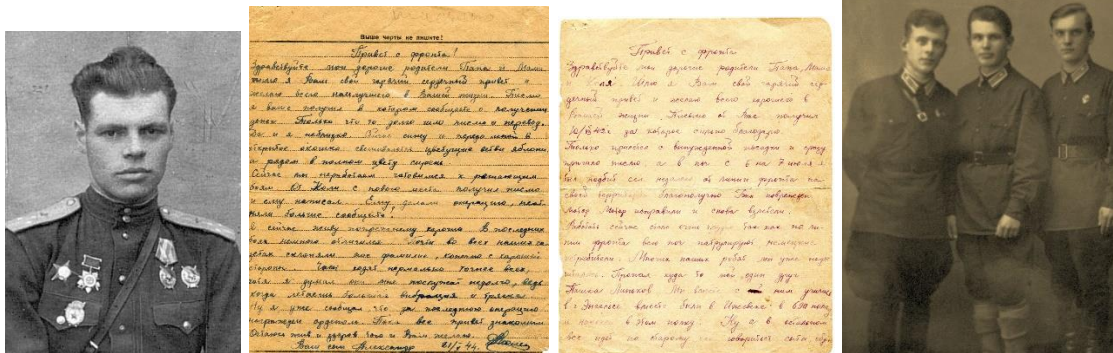 Выше черты не пишите!
Привет с фронта!
Здравствуйте мои дорогие родители Папа и Мама
шлю я Вам свой горячий сердечный привет и
желаю всего наилучшего в Вашей жизни. Письмо
я ваше получил в котором сообщаете о получении
денег. Только что то долго шло письмо и перевод.
Да и я напишу. Сейчас сижу и передо мной в
открытое окошко цветущие ветви яблони
а рядом в полном цвету сирень.
Сейчас мы готовимся к решающим
боям. От Коли с нового места получил письмо
и ему написал. Ему делали операцию,
больше сообщает.
Я сейчас живу хорошо. В последних
боях немного отличился. Почти во всех наших
склоняли мою фамилию, конечно с хорошей
стороны. Часы ходят нормально точнее всех,
хотя я думал они мне послужат неделю, ведь
когда летаешь большая вибрация и тряска.
Ну я уже сообщал что за последнюю операцию
награжден орденом. Пока все привет знакомым
Остаюсь жив и здоров чего и Вам желаю.
Ваш сын Александр 21/V 44.
Привет с фронта
Здравствуйте мои дорогие родители Папа, Мама
Шлю я Вам свой горячий сер-
дечный привет и желаю всего хорошего в
Вашей жизни. Письмо от Вас получил
за которое сильно благодарю.
Только прилетел с вынужденной посадки и сразу
принесли письмо, а в ночь с 6 на 7 июля я
был подбит сел недалеко от линии фронта на
своей территории благополучно был поврежден
мотор. Мотор исправили и снова взлетели.
Работать сейчас стало очень
фронта всю ночь патрулируют немецкие
истребители. Многих наших ребят мы уже
Пропал куда то мой один друг
Мы вместе с ним учились
в Энгельсе вместе были в Ижевске в
и попали в один полк. Ну а в остальном
все идет по старому как говорится